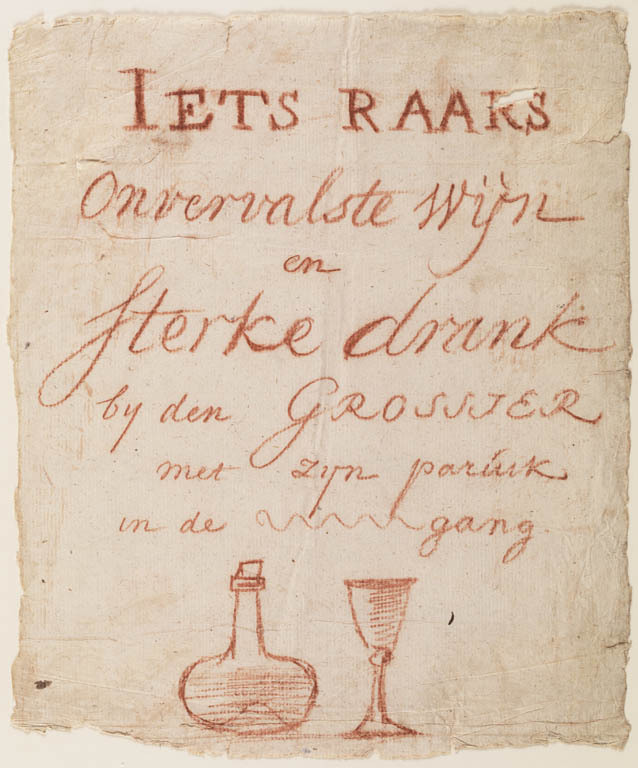 IETS RAAKS
Onvervalste Wÿn
en
sterke drank
by den GROSSIER
met zyn paruik
in de gang